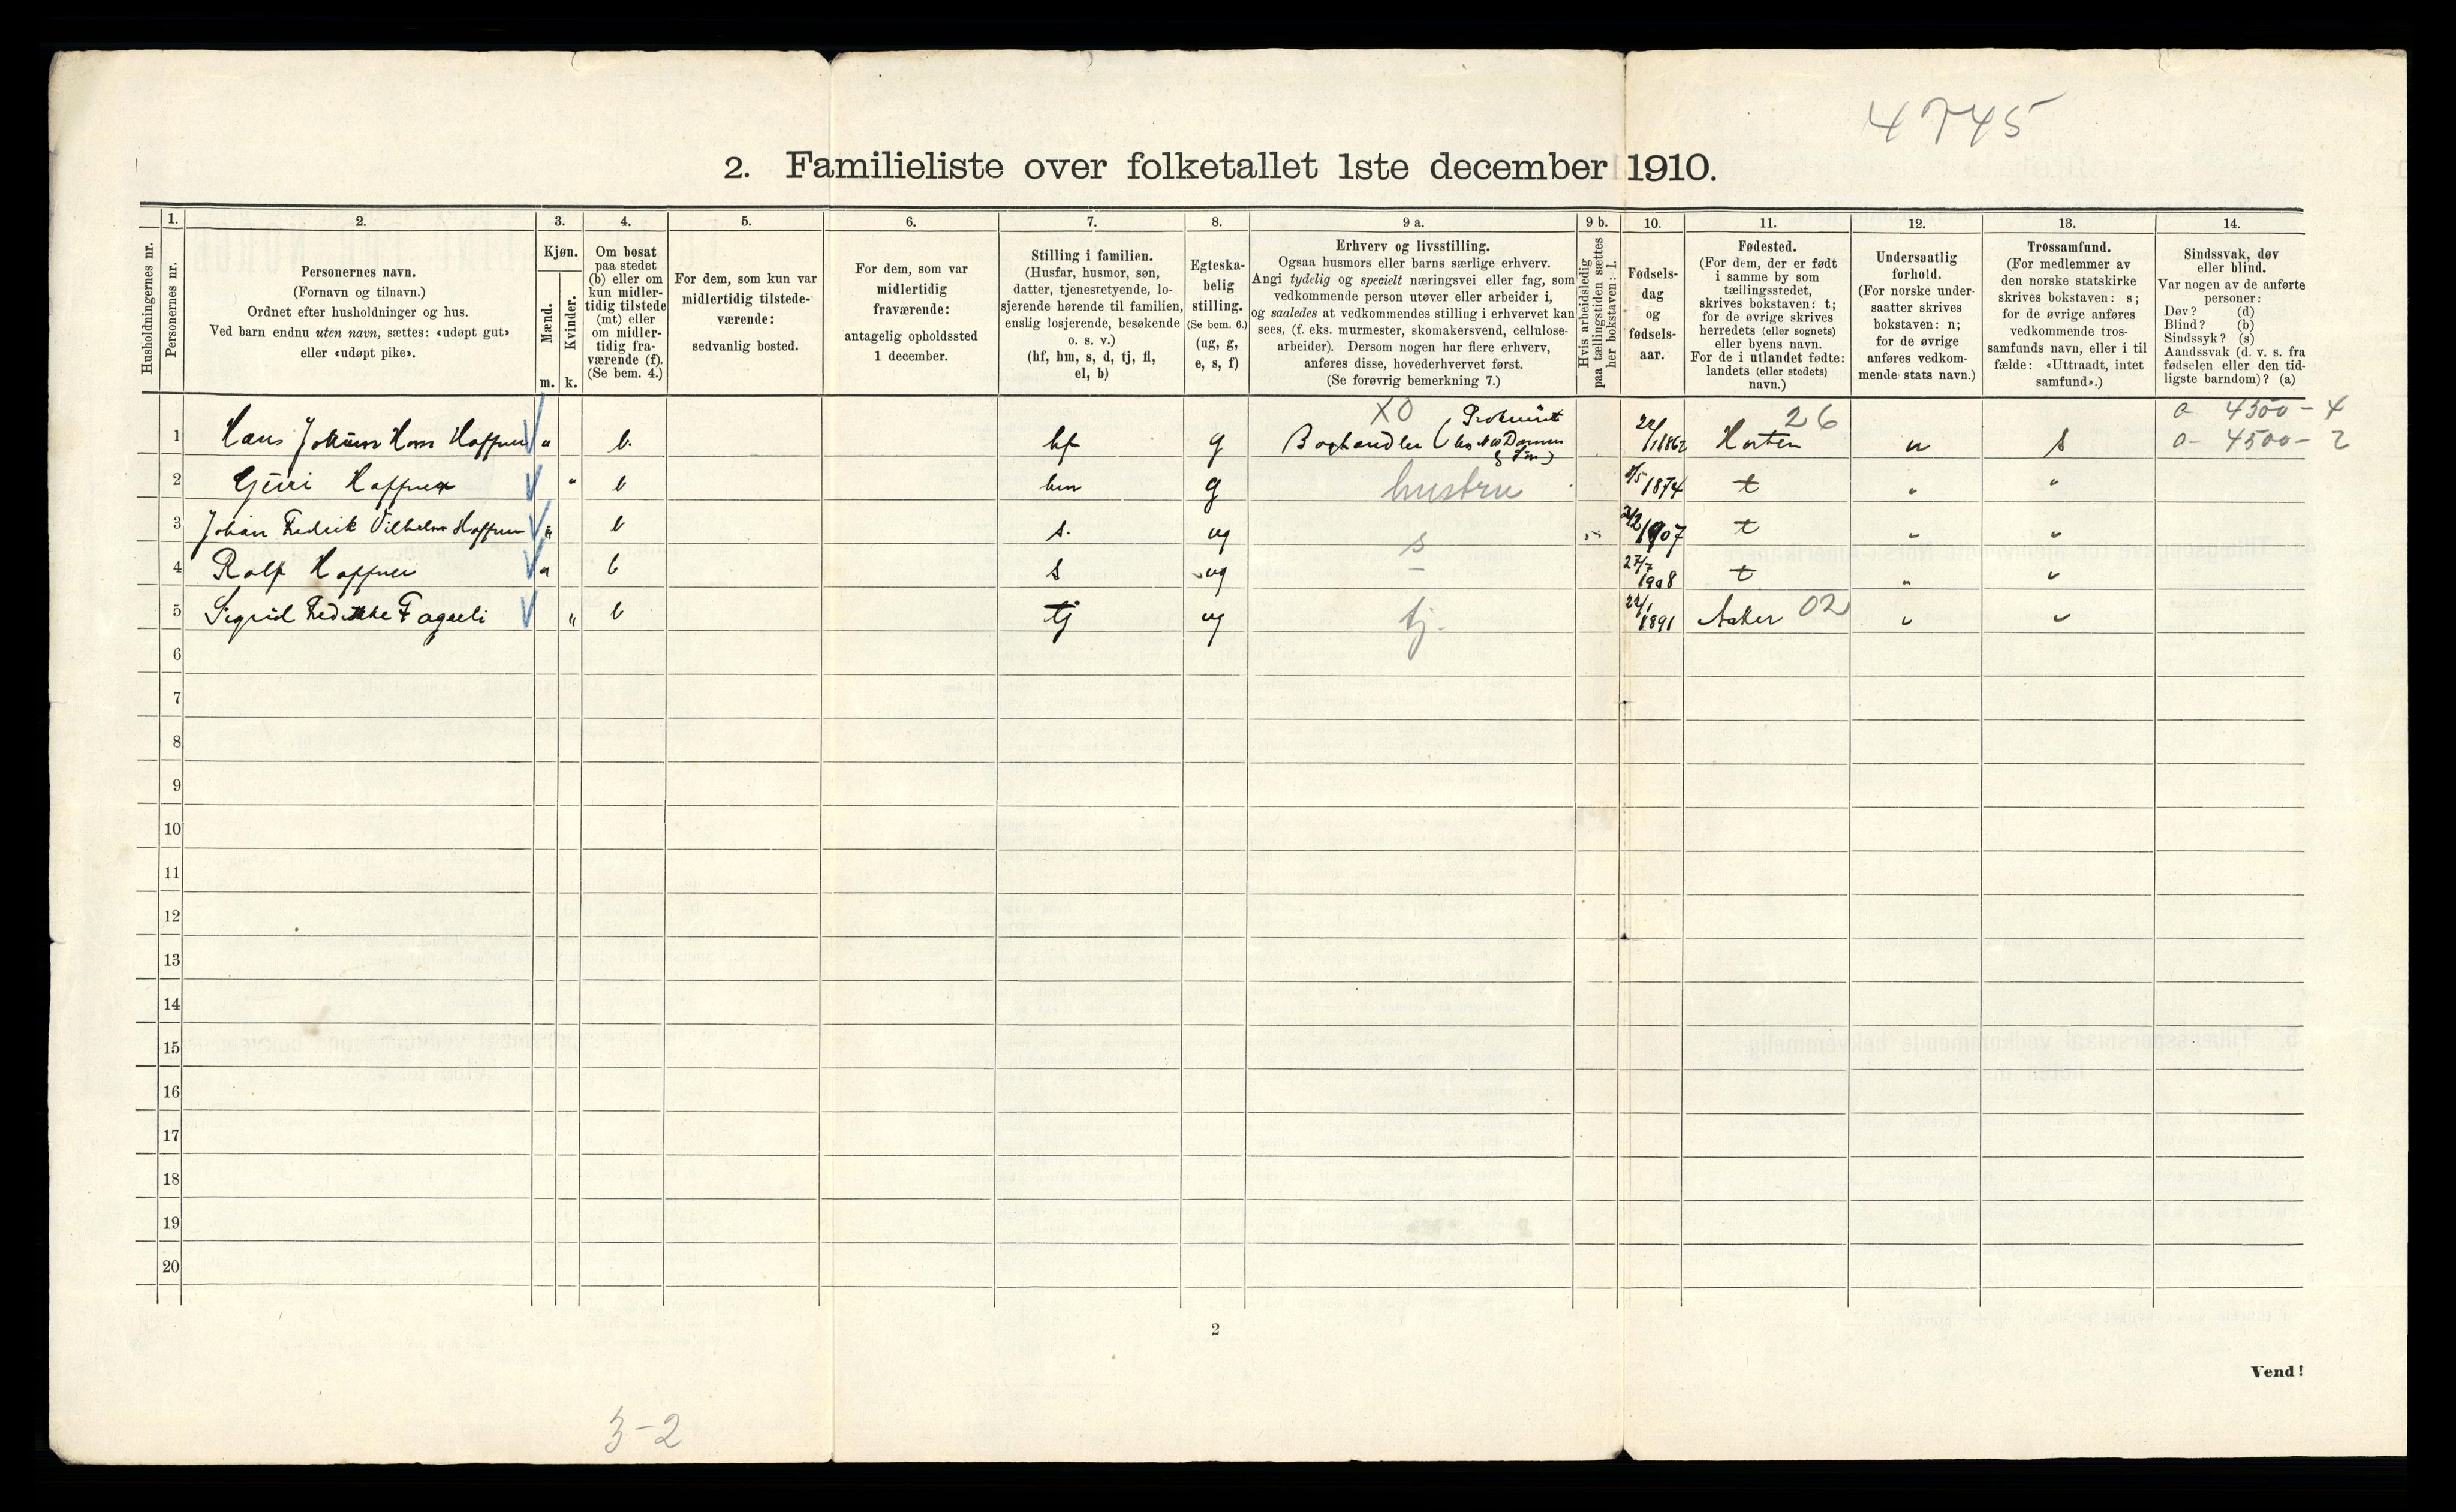 4745
2. Familieliste over folketallet 1ste december 1910.
Husholdningernes nr.
1.
Personernes nr.
2.
Personernes navn.
(Fornavn og tilnavn.)
Ordnet efter husholdninger og hus.
Ved barn endnu uten navn, sættes: «udøpt gut»
eller «udøpt pike».
3.
Kjøn.
Mænd.
Kvinder.
m. k.
4.
Om bosat
paa stedet
(b) eller om
kun midler-
tidig tilstede
(mt) eller
om midler-
tidig fra-
værende (f).
(Se bem. 4.)
5.
For dem, som kun var
midlertidig tilstede-
værende:
sedvanlig bosted.
6.
For dem, som var
midlertidig
fraværende:
antagelig opholdssted
1 december.
7.
Stilling i familien.
(Husfar, husmor, søn,
datter, tjenestetyende, lo-
sjerende hørende til familien,
enslig losjerende, besøkende
o. s. v.)
(hf, hm, s, d, tj, fl,
el, b)
8.
Egteska-
belig
stilling.
(Se bem. 6.)
(ug, g,
e, s, f)
9 a.
Erhverv og livsstilling.
Ogsaa husmors eller barns særlige erhverv.
Angi tydelig og specielt næringsvei eller fag, som
vedkommende person utøver eller arbeider i,
og saaledes at vedkommendes stilling i erhvervet kan
sees, (f. eks. murmester, skomakersvend, cellulose-
arbeider). Dersom nogen har flere erhverv,
anføres disse, hovederhvervet først.
(Se forøvrig bemerkning 7.)
9 b.
Hvis arbeidsledig
paa tællingstiden sættes
her bokstaven: l.
10.
Fødsels-
dag
og
fødsels-
aar.
11.
Fødested.
(For dem, der er født
i samme by som
tællingsstedet,
skrives bokstaven: t;
for de øvrige skrives
herredets (eller sognets)
eller byens navn.
For de i utlandet fødte:
landets (eller stedets)
navn.)
12.
Undersaatlig
forhold.
(For norske under-
saatter skrives
bokstaven: n;
for de øvrige
anføres vedkom-
mende stats navn.)
13.
Trossamfund.
(For medlemmer av
den norske statskirke
skrives bokstaven: s;
for de øvrige anføres
vedkommende tros-
samfunds navn, eller i til
fælde: «Uttraadt, intet
samfund».)
14.
Sindssvak, døv
eller blind.
Var nogen av de anførte
personer:
Døv? (d)
Blind? (b)
Sindssyk? (s)
Aandssvak (d. v. s. fra
fødselen eller den tid-
ligste barndom)? (a)
XO Prokurist 26 a- 4300-4
1 Hans Hoffner " b. hf g Boghandler 1862 Horten n s a- 4500-2
& Søn)
2 Hoffner " b hm g hustru 1874 t " "
3 Johan Fredrik Vilhelm Hoffner " b s. ug s 1907 t " "
4 Rolf Hoffner " b s ug 27/7 1908 t " "
5 Sigrid " b tj ug tj. 1891 Asker 02 " "
6
7
8
9
10
11
12
13
14
15
16
17
18
19
20
2
Vend!
3-2